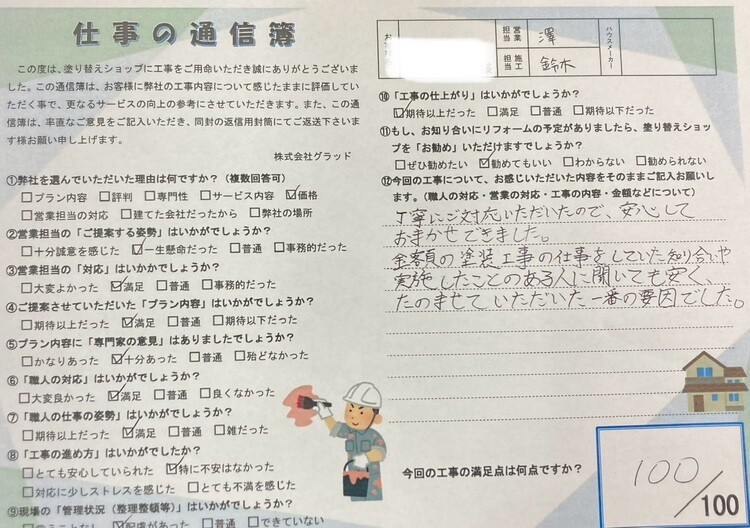 仕事の通信簿
この度は、塗り替えショップに工事をご用命いただき誠にありがとうございまし
た。この通信簿は、お客様に弊社の工事内容について感じたままに評価してい
ただく事で、更なるサービスの向上の参考にさせていただきます。また、この通
信簿は、率直なご意見をご記入いただき、同封の返信用封筒にてご返送下さいま
す様お願い申し上げます。
株式会社グラッド
①弊社を選んでいただいた理由は何ですか?（複数回答可）
□プラン内容 □評判 □専門性 □サービス内容 ☑価格
□営業担当の対応 □建てた会社だったから □弊社の場所
②営業担当の「ご提案する姿勢」はいかがでしょうか?
□十分誠意を感じた ☑一生懸命だった □普通 □事務的だった
③営業担当の「対応」はいかかでしょうか?
□大変よかった ☑満足 □普通 □事務的だった
④ご提案させていただいた「プラン内容」はいかがでしょうか?
□期待以上だった ☑満足 □普通 □期待以下だった
⑤プラン内容に「専門家の意見」はありましたでしょうか?
□かなりあった ☑十分あった □普通 □殆どなかった
⑥「職人の対応」はいかがでしょうか?
□大変良かった ☑満足 □普通 □良くなかった
⑦「職人の仕事の姿勢」はいかがでしょうか?
□期待以上だった ☑満足 □普通 □雑だった
⑧「工事の進め方」はいかがでしたか?
□とても安心していられた ☑特に不安はなかった
□対応に少しストレスを感じた □とても不満を感じた
⑨現場の「管理状況（整理整頓等）」はいかがでしょうか?
☑配慮があった □普通 □できていない
営業担当 澤
施工担当 鈴木
ハウスメーカー
⑩「工事の仕上がり」はいかがでしょうか?
☑期待以上だった □満足 □普通 □期待以下だった
⑪もし、お知り合いにリフォームの予定がありましたら、塗り替えショッ
プを「お勧め」いただけますでしょうか?
□ぜひ勧めたい ☑勧めてもいい □わからない □勧められない
⑫今回の工事について、お感じいただいた内容をそのままご記入お願いしま
す。（職人の対応・営業の対応・工事の内容・金額などについて）
丁寧にご対応いただいたので、安心して
おまかせできました。
金額の塗装工事の仕事をしていた知り合いや
実施したことのある人に聞いても安く、
たのませていただいた一番の要因でした。
今回の工事の満足点は何点ですか?
100/100